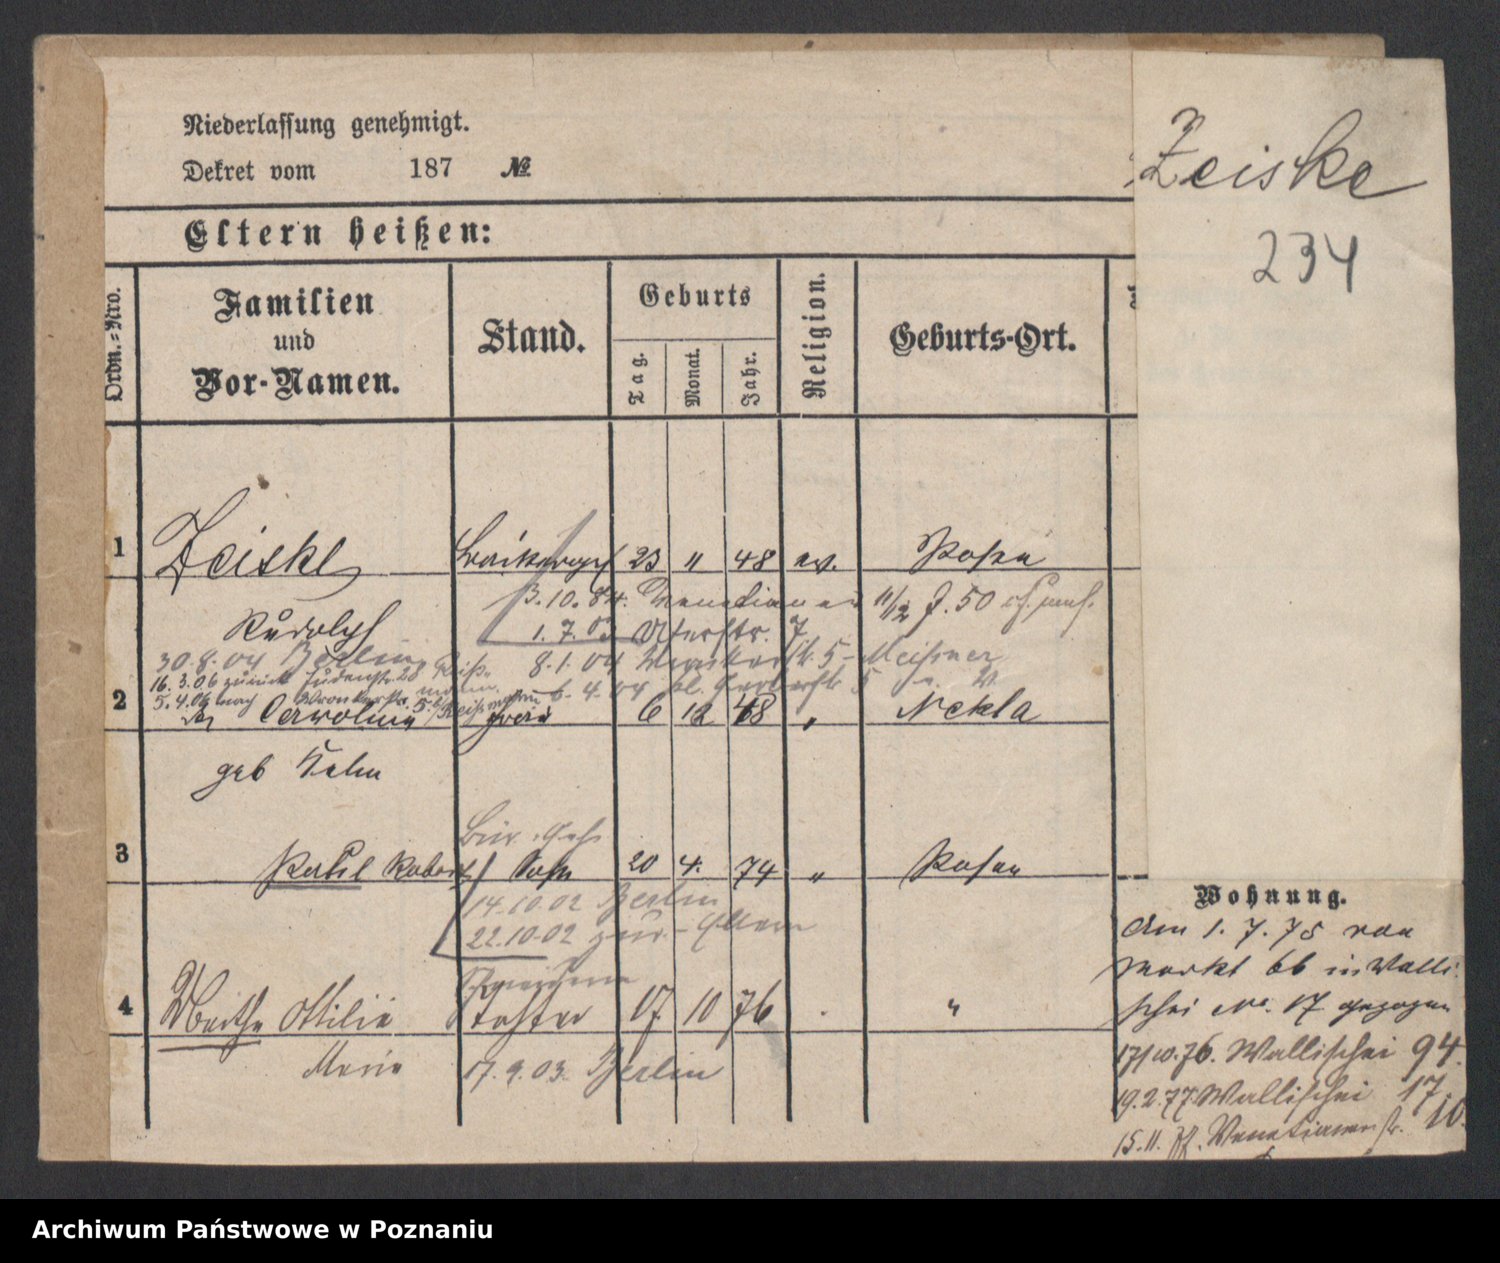 Zeiske
234
Niederlassung genehmigt.
Dekret vom 187 №
Eltern heißen:
Ordn.-Nro.
Familien und Vor-Namen.
Stand.
Geburts
Tag.
Monat.
Jahr.
Religion.
Geburts-Ort.
1 Zeiske 23 " 48 ev. Posen
3.10.84. Venetianer 11/12 J. 50
Rudolph 1.7.03 7
30.8.04 Berlin 8.1.04 5 Meißner
16.3.06 zurück Judenstr. 28
5.4.06 nach Wronkerstr. 5 6.4.04 kl. Gerberstr
2 Caroline 6 12 48 " Nekla
geb
3 Paul Robert Sohn 20 4. 74 " Posen
14.10.02 Berlin
22.10.02 zur. Eltern
4 Martha Ottilie Tochter 17 10 76 . "
Marie 17.9.03. Berlin
Wohnung.
Am 1. 7. 75 von
Markt 66 in Walli
schei No. 17 gezogen
17/10.76. Wallischei 94.
19.2.77. Wallischei 17
15.11. Venetianerstr. 10.
Archiwum Państwowe w Poznaniu